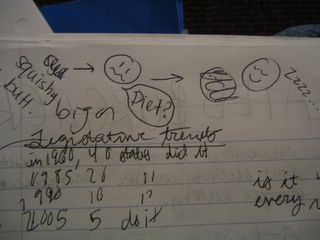 squishy → → zzzz...
butt.
Diet?
big on
Legislative trends
in 1960, 40 states did it
1985, 20 "
1990 10 "
2005 5 do it
is it
every